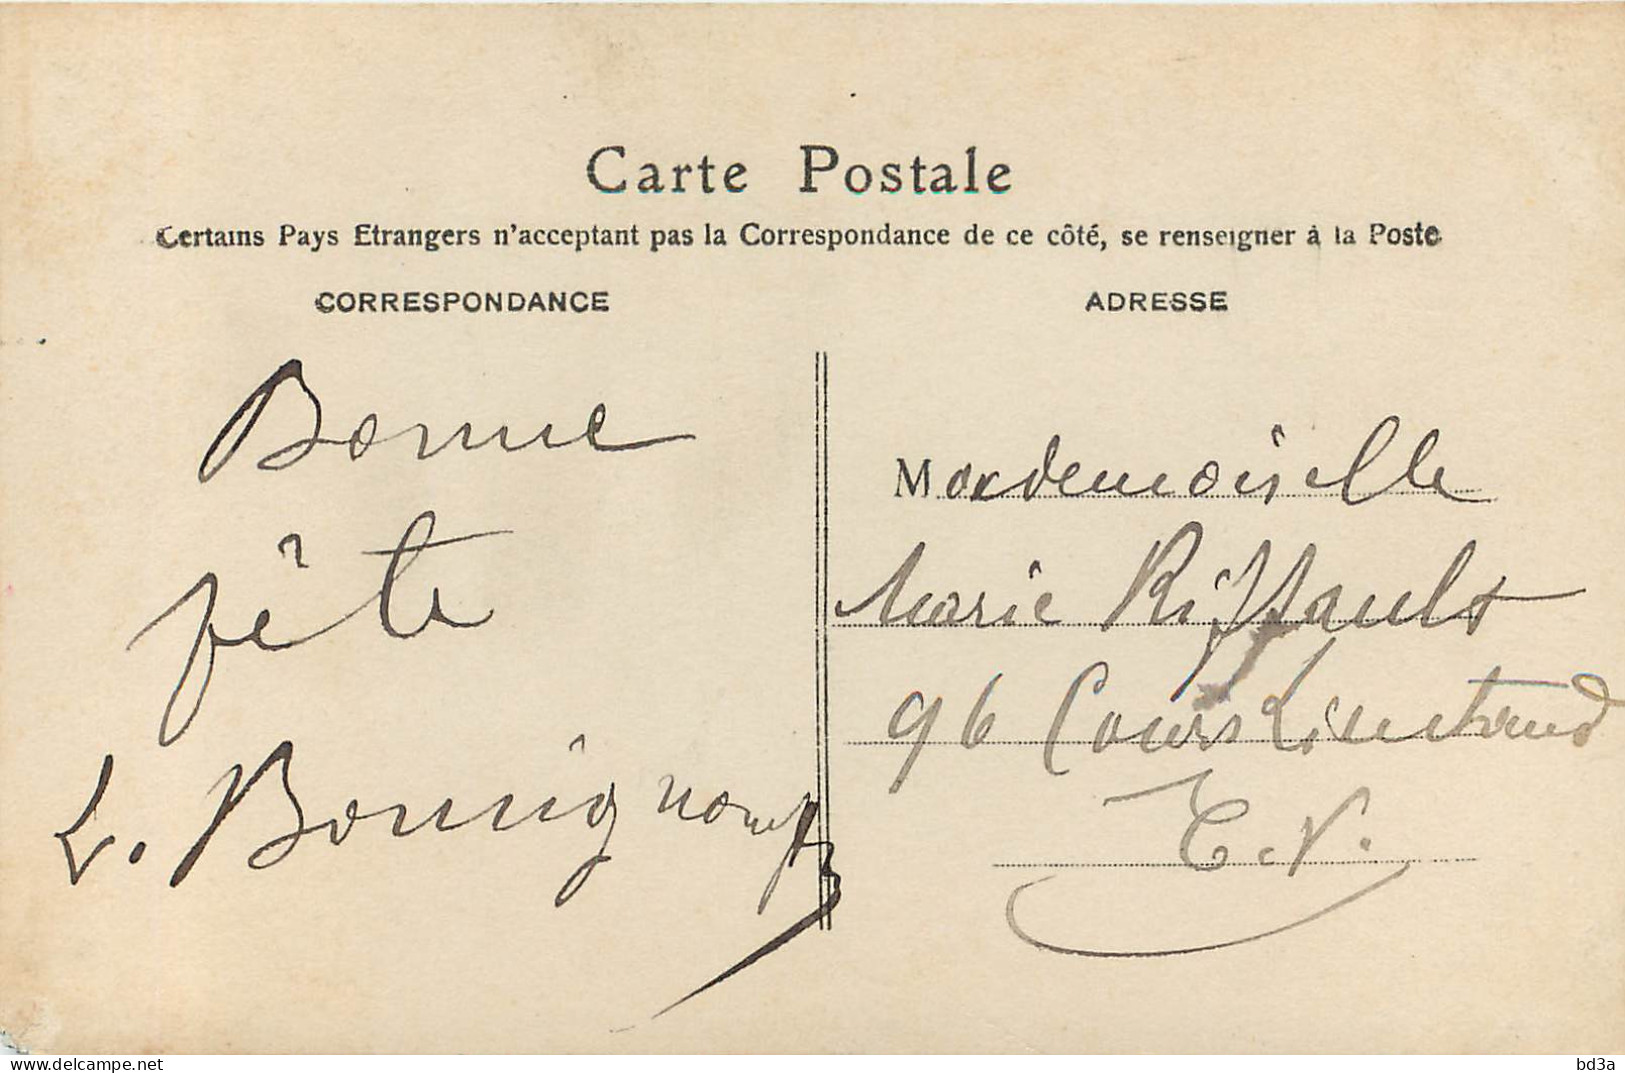 Carte Postale
Certains Pays Etrangers n'acceptant pas la Correspondance de ce côté, se renseigner à la Poste
CORRESPONDANCE
Bonne
fête
L.
ADRESSE
Mademoiselle
Marie Riffault
96 Cours Lieutaud
E.V.
delcampe.net
bd3a